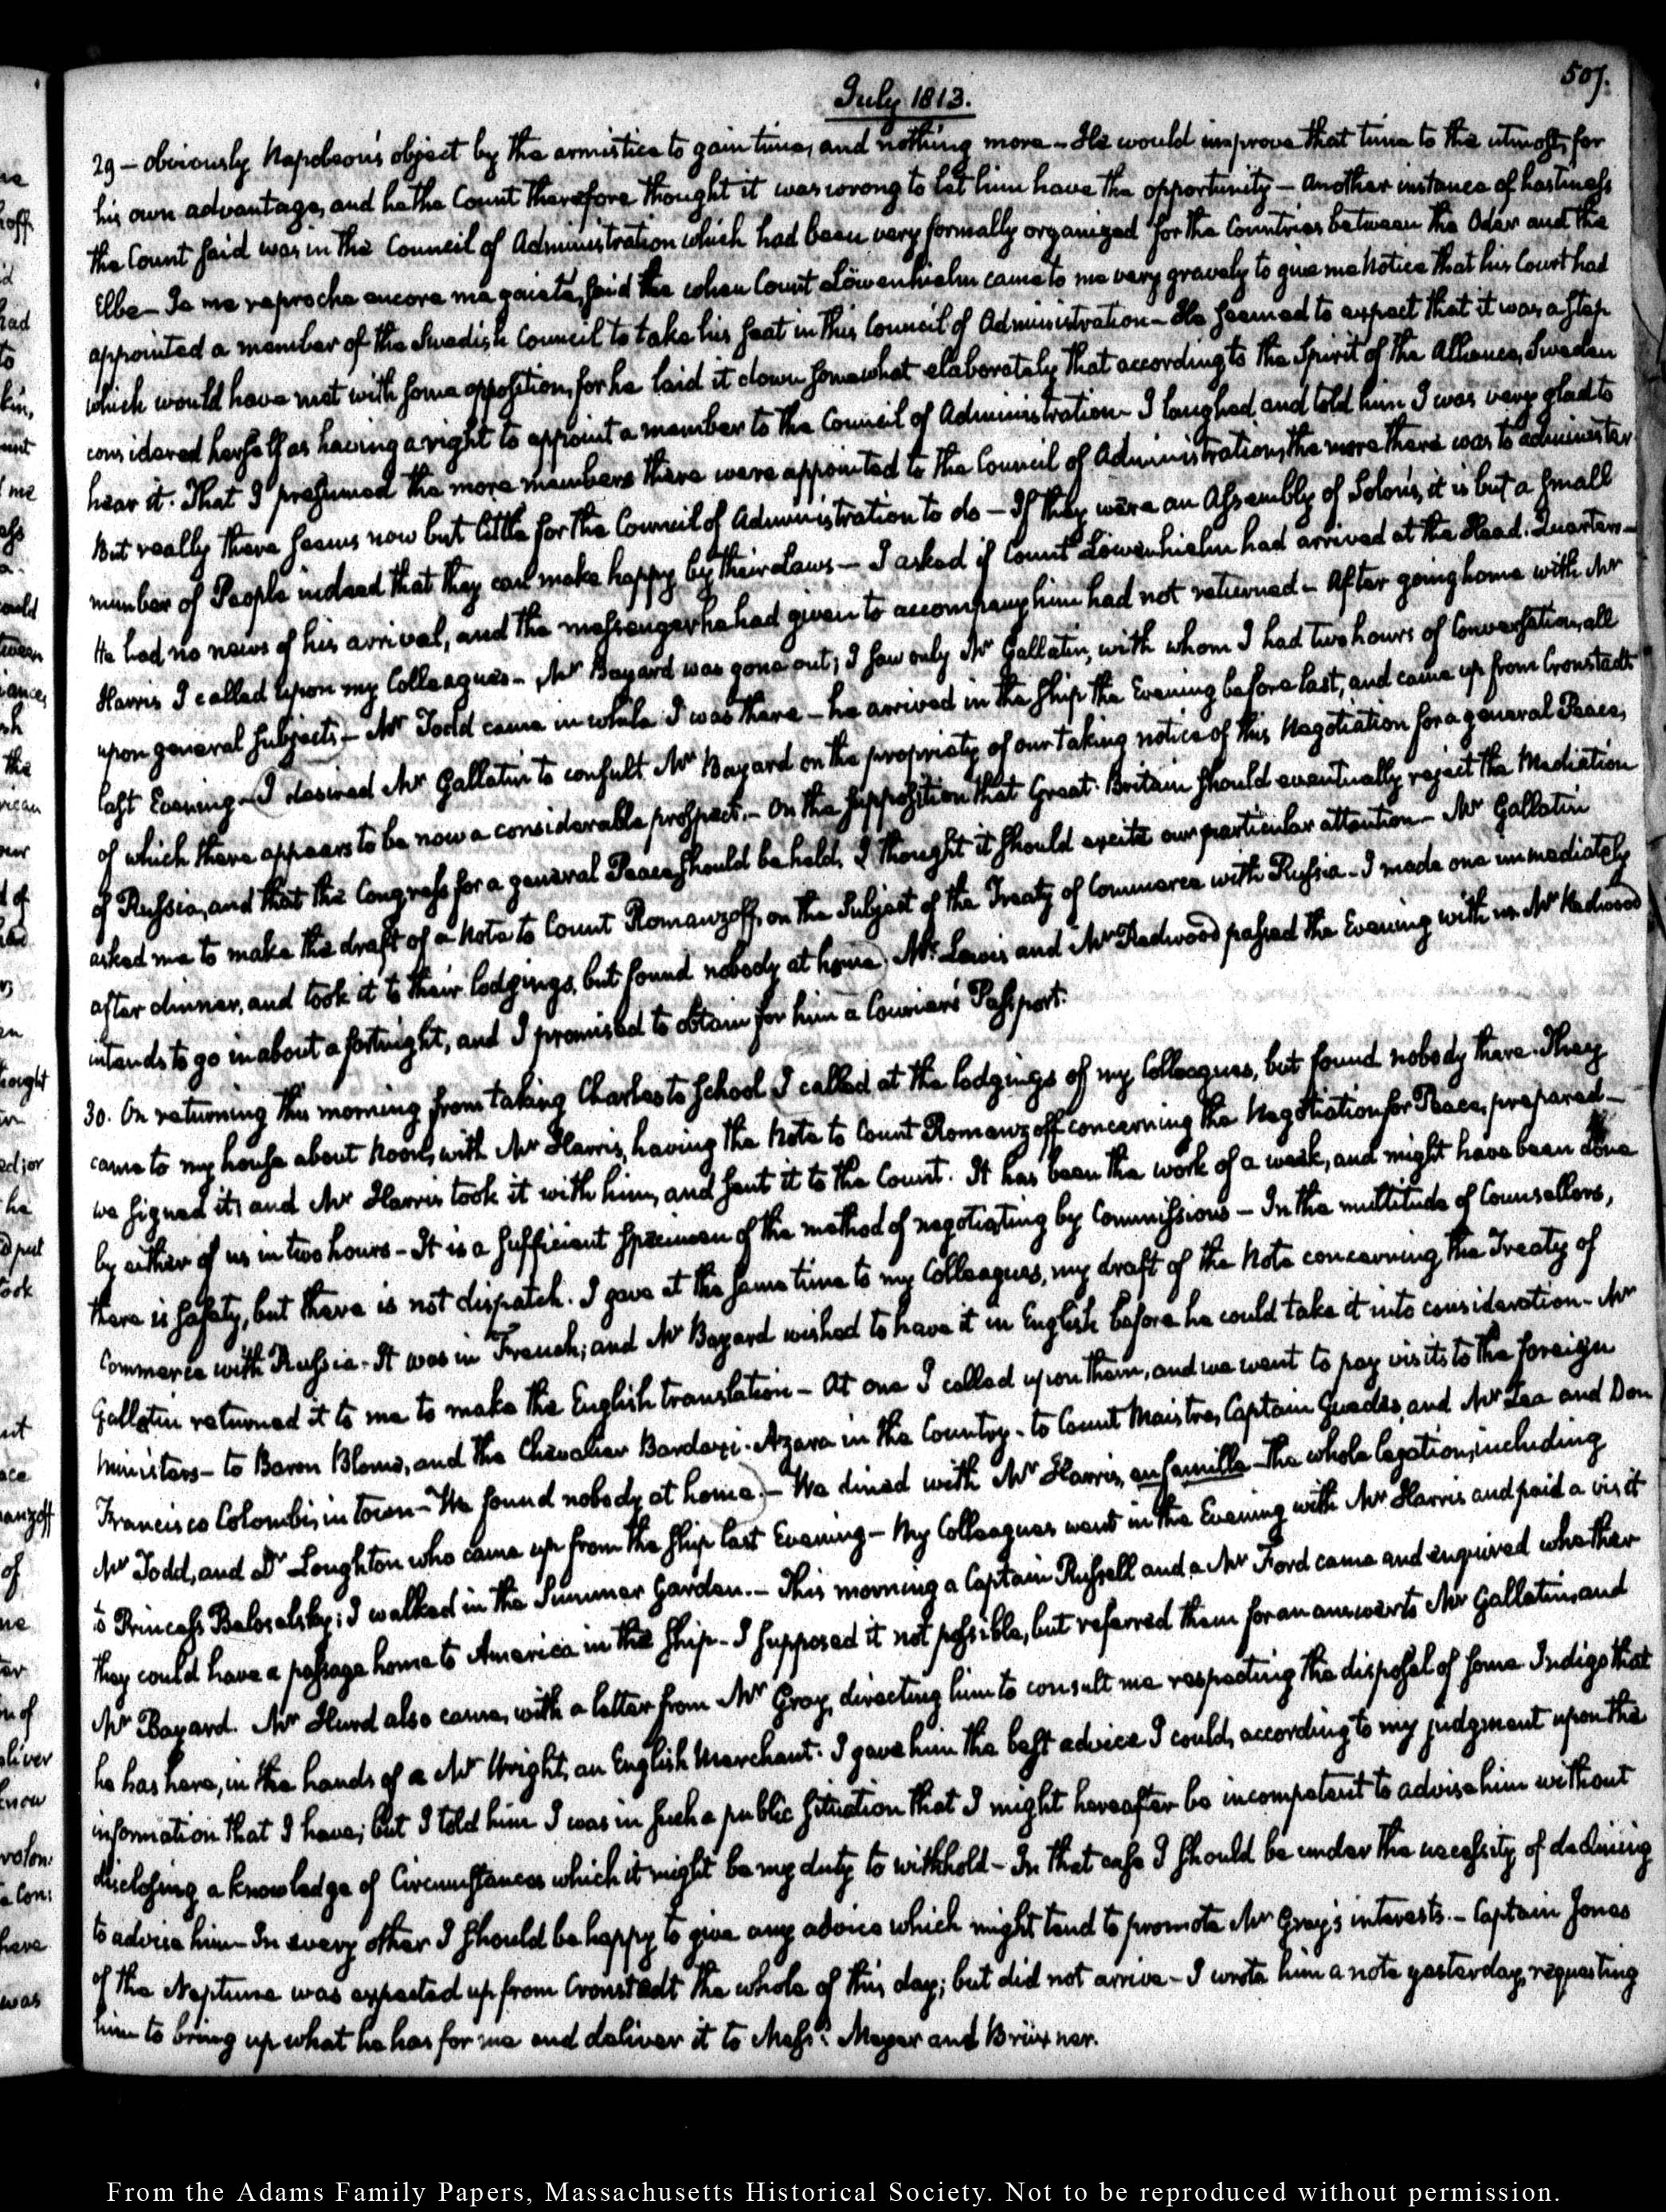 July 1813.
507.
29 — obviously Napoleon's object by the armistice to gain time, and nothing more — He would improve that time to the utmost, for
his own advantage, and he the Count therefore thought it was wrong to let him have the opportunity — Another instance of hastiness
the Count said was in the Council of Administration which had been very formally organized for the Countries between the Oder and the
Elbe — Je me reproche encore ma gaieté, said he when Count Löwenhielm came to me very gravely to give me Notice that his Court had
appointed a member of the Swedish Council to take his seat in this Council of Administration — He seemed to expect that it was a step
which would have met with some opposition, for he laid it down somewhat elaborately, that according to the Spirit of the Alliance, Sweden
considered herself as having a right to appoint a member to the Council of Administration — I laughed and told him I was very glad to
hear it. That I presumed the more members there were appointed to the Council of Administration, the more there was to administer
But really there seems now but little for the Council of Administration to do — If they were an Assembly of Solons, it is but a small
number of People indeed that they can make happy by their Laws — I asked if Count Löwenhielm had arrived at the Head-Quarters —
He had no news of his arrival, and the messenger he had given to accompany him had not returned — After going home with Mr
Harris I called upon my Colleagues — Mr Bayard was gone out; I saw only Mr Gallatin, with whom I had two hours of Conversation, all
upon general subjects — Mr Todd came in while I was there — he arrived in the ship the Evening before last, and came up from Cronstadt
last Evening — I desired Mr Gallatin to consult Mr Bayard on the propriety of our taking notice of this Negotiation for a general Peace,
of which there appears to be now a considerable prospect. — On the supposition that Great-Britain should eventually reject the Mediation
of Russia, and that the Congress for a general Peace should be held, I thought it should excite our particular attention — Mr Gallatin
asked me to make the draft of a Note to Count Romanzoff, on the Subject of the Treaty of Commerce with Russia — I made one immediately
after dinner, and took it to their lodgings, but found nobody at home. Mr Lewis and Mr Redwood passed the Evening with us. Mr Redwood
intends to go in about a fortnight, and I promised to obtain for him a Courier's Passport.
30. On returning this morning from taking Charles to School I called at the lodgings of my Colleagues, but found nobody there. They
came to my house about Noon, with Mr Harris, having the Note to Count Romanzoff concerning the Negotiation for Peace, prepared —
we signed it, and Mr Harris took it with him, and sent it to the Count. It has been the work of a week, and might have been done
by either of us in two hours — It is a sufficient specimen of the method of negotiating by Commissions — In the multitude of Counsellors,
there is safety, but there is not dispatch. I gave at the same time to my Colleagues, my draft of the Note concerning the Treaty of
Commerce with Russia. It was in French; and Mr Bayard wished to have it in English before he could take it into consideration — Mr
Gallatin returned it to me to make the English translation — At one I called upon them, and we went to pay visits to the foreign
Ministers — to Baron Blome, and the Chevalier Bardaxi-Azara in the Country — to Count Maistre, Captain Guedes, and Mr Zea and Don
Francisco Colombi, in town — We found nobody at home. — We dined with Mr Harris, en famille — the whole legation, including
Mr Todd, and Dr Loughton who came up from the ship last Evening — My Colleagues went in the Evening with Mr Harris and paid a visit
to Princess Beloselsky; I walked in the Summer Garden. — This morning a Captain Russell and a Mr Ford came and enquired whether
they could have a passage home to America in the ship — I supposed it not possible, but referred them for an answer to Mr Gallatin, and
Mr Bayard. Mr Hurd also came, with a letter from Mr Gray, directing him to consult me respecting the disposal of some Indigo that
he has here, in the hands of a Mr Wright, an English Merchant. I gave him the best advice I could, according to my judgment upon the
information that I have; but I told him I was in such a public situation that I might hereafter be incompetent to advise him without
disclosing a knowledge of Circumstances which it might be my duty to withhold — In that case I should be under the necessity of declining
to advise him — In every other I should be happy to give any advice which might tend to promote Mr Gray's interests. — Captain Jones
of the Neptune was expected up from Cronstadt the whole of this day; but did not arrive — I wrote him a note yesterday, requesting
him to bring up what he has for me and deliver it to Messrs. Meyer and Brüxner.
From the Adams Family Papers, Massachusetts Historical Society. Not to be reproduced without permission.